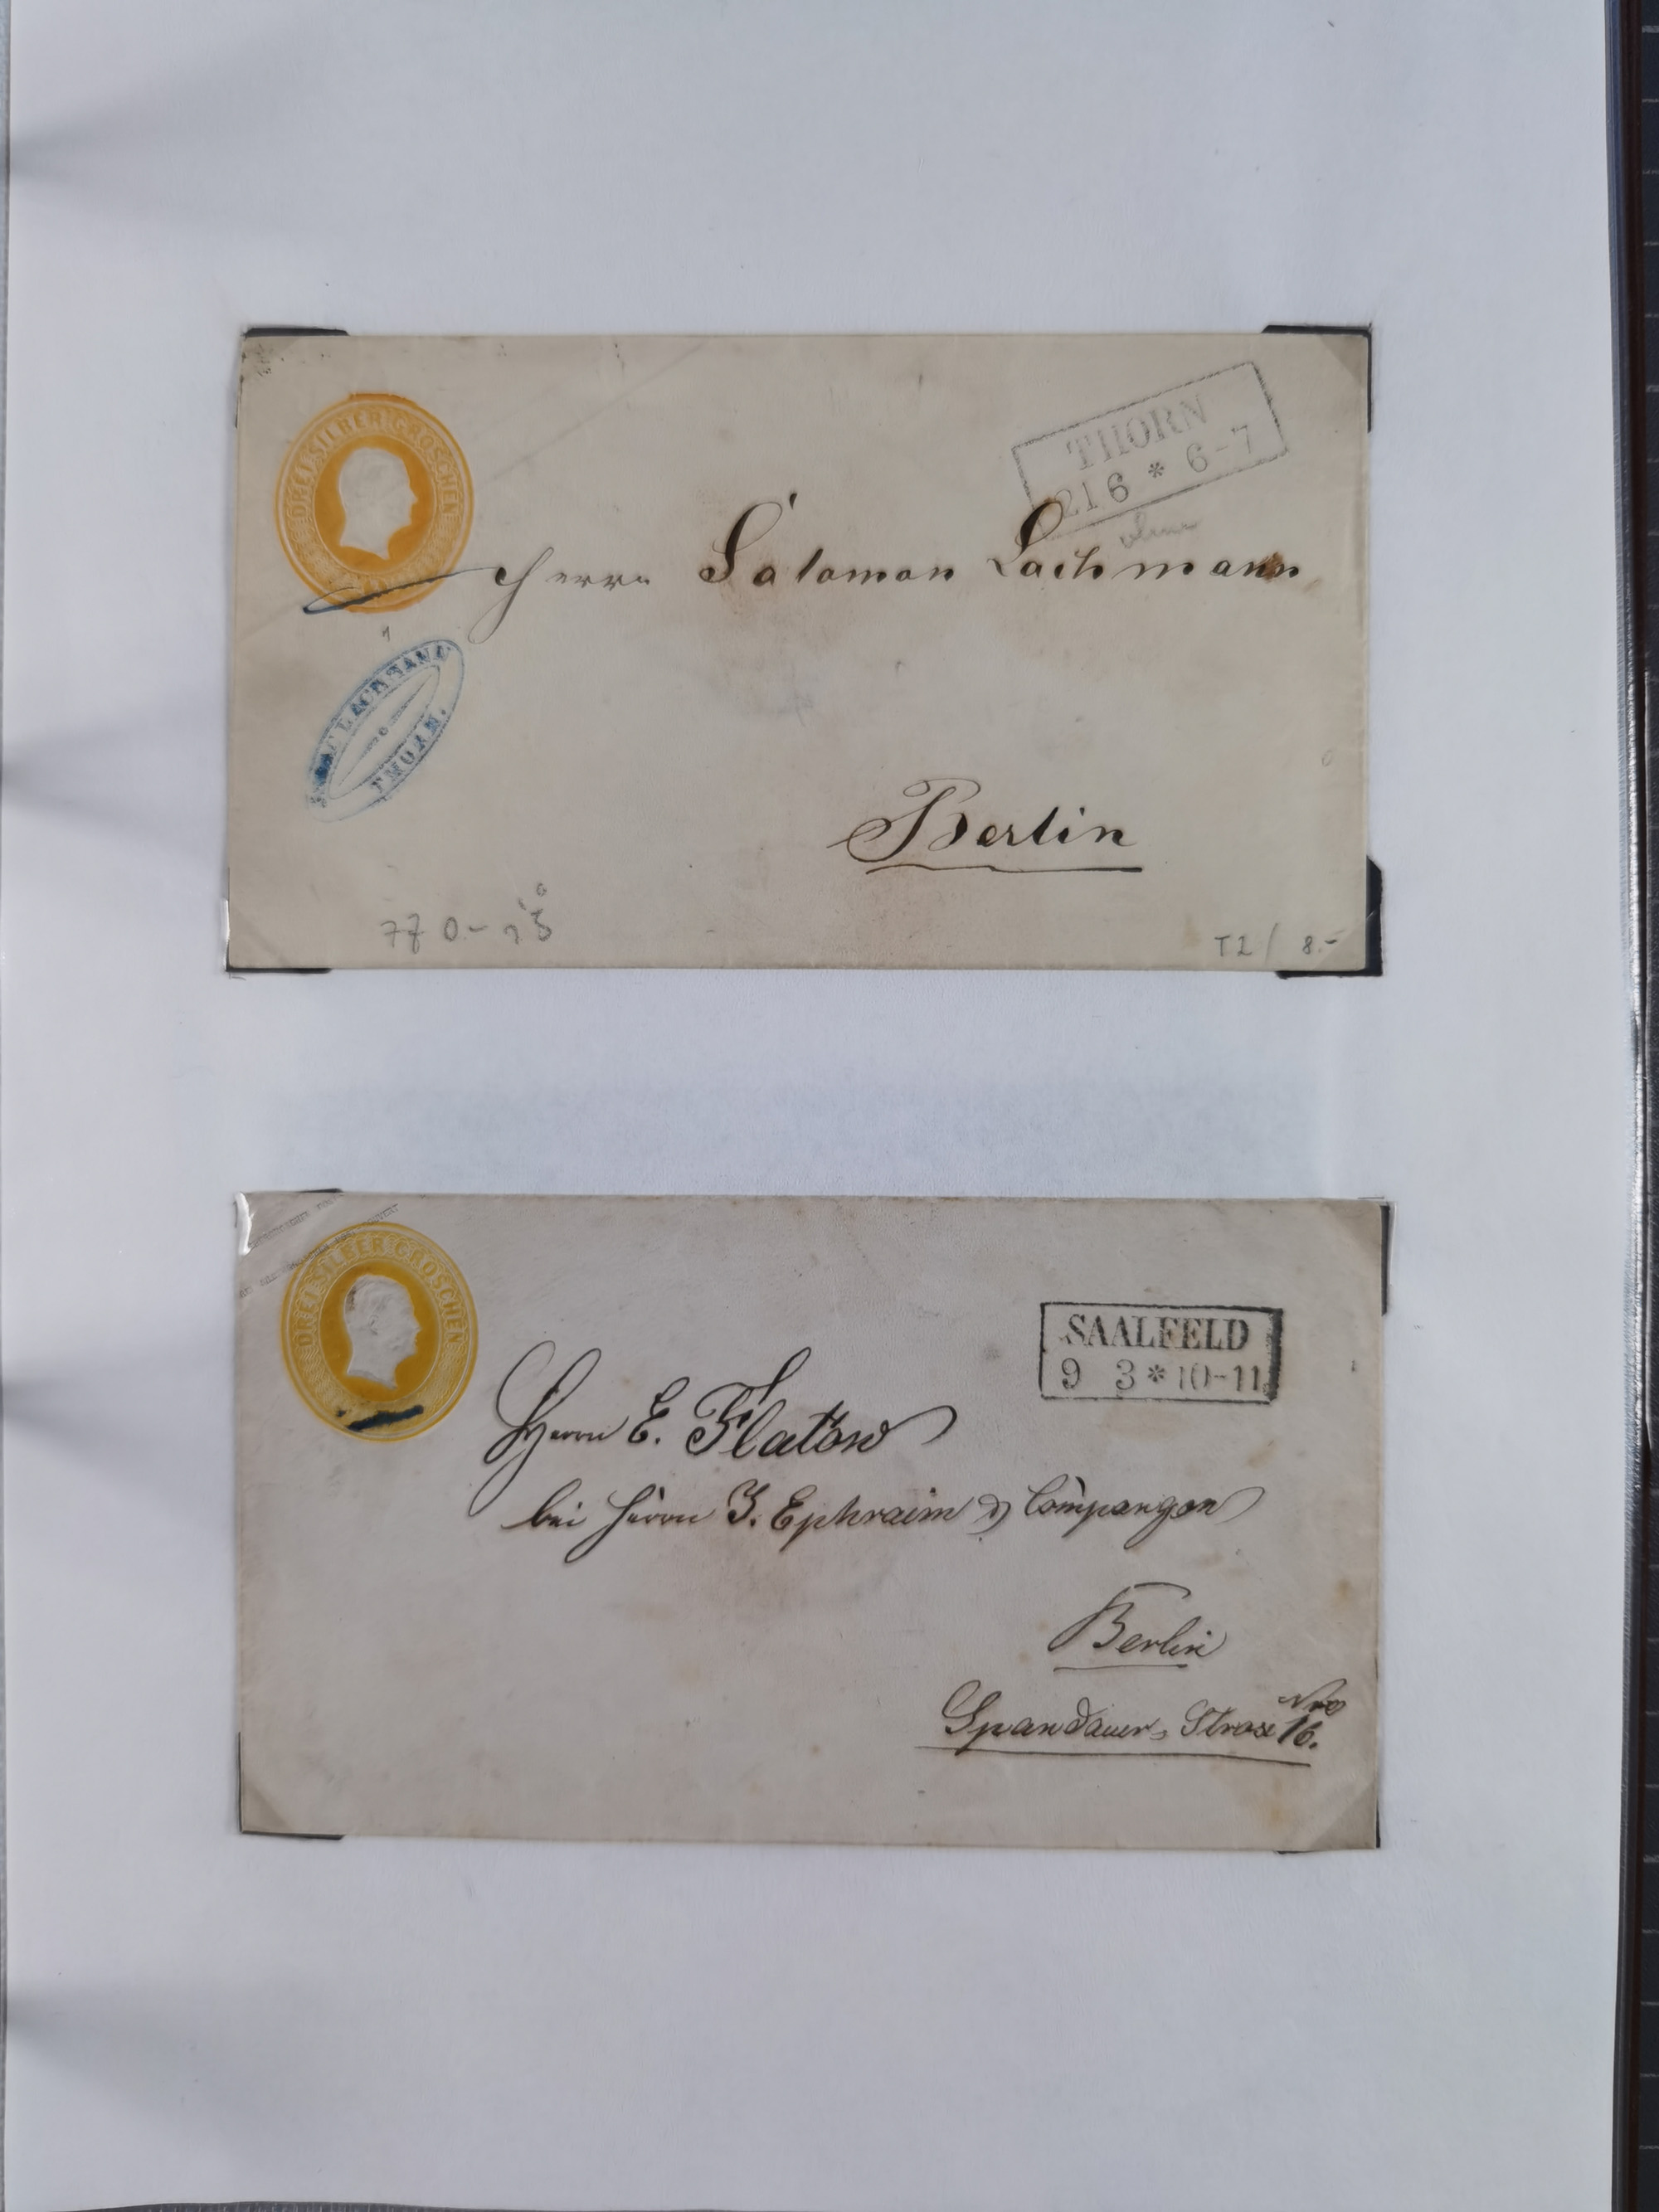 DREI SILBER GROSCHEN
THORN
21 6 * 6-7
Herrn Salomon Lachmann
LACHMANN
THORN.
Berlin
770.-
T2/ 8.-
DREI SILBER GROSCHEN
SAALFELD
9 3 * 10-11
Herrn E. Flatow
bei Herrn J. Ephraim & Compangon
Berlin
Spandauer Strase Nro 16.